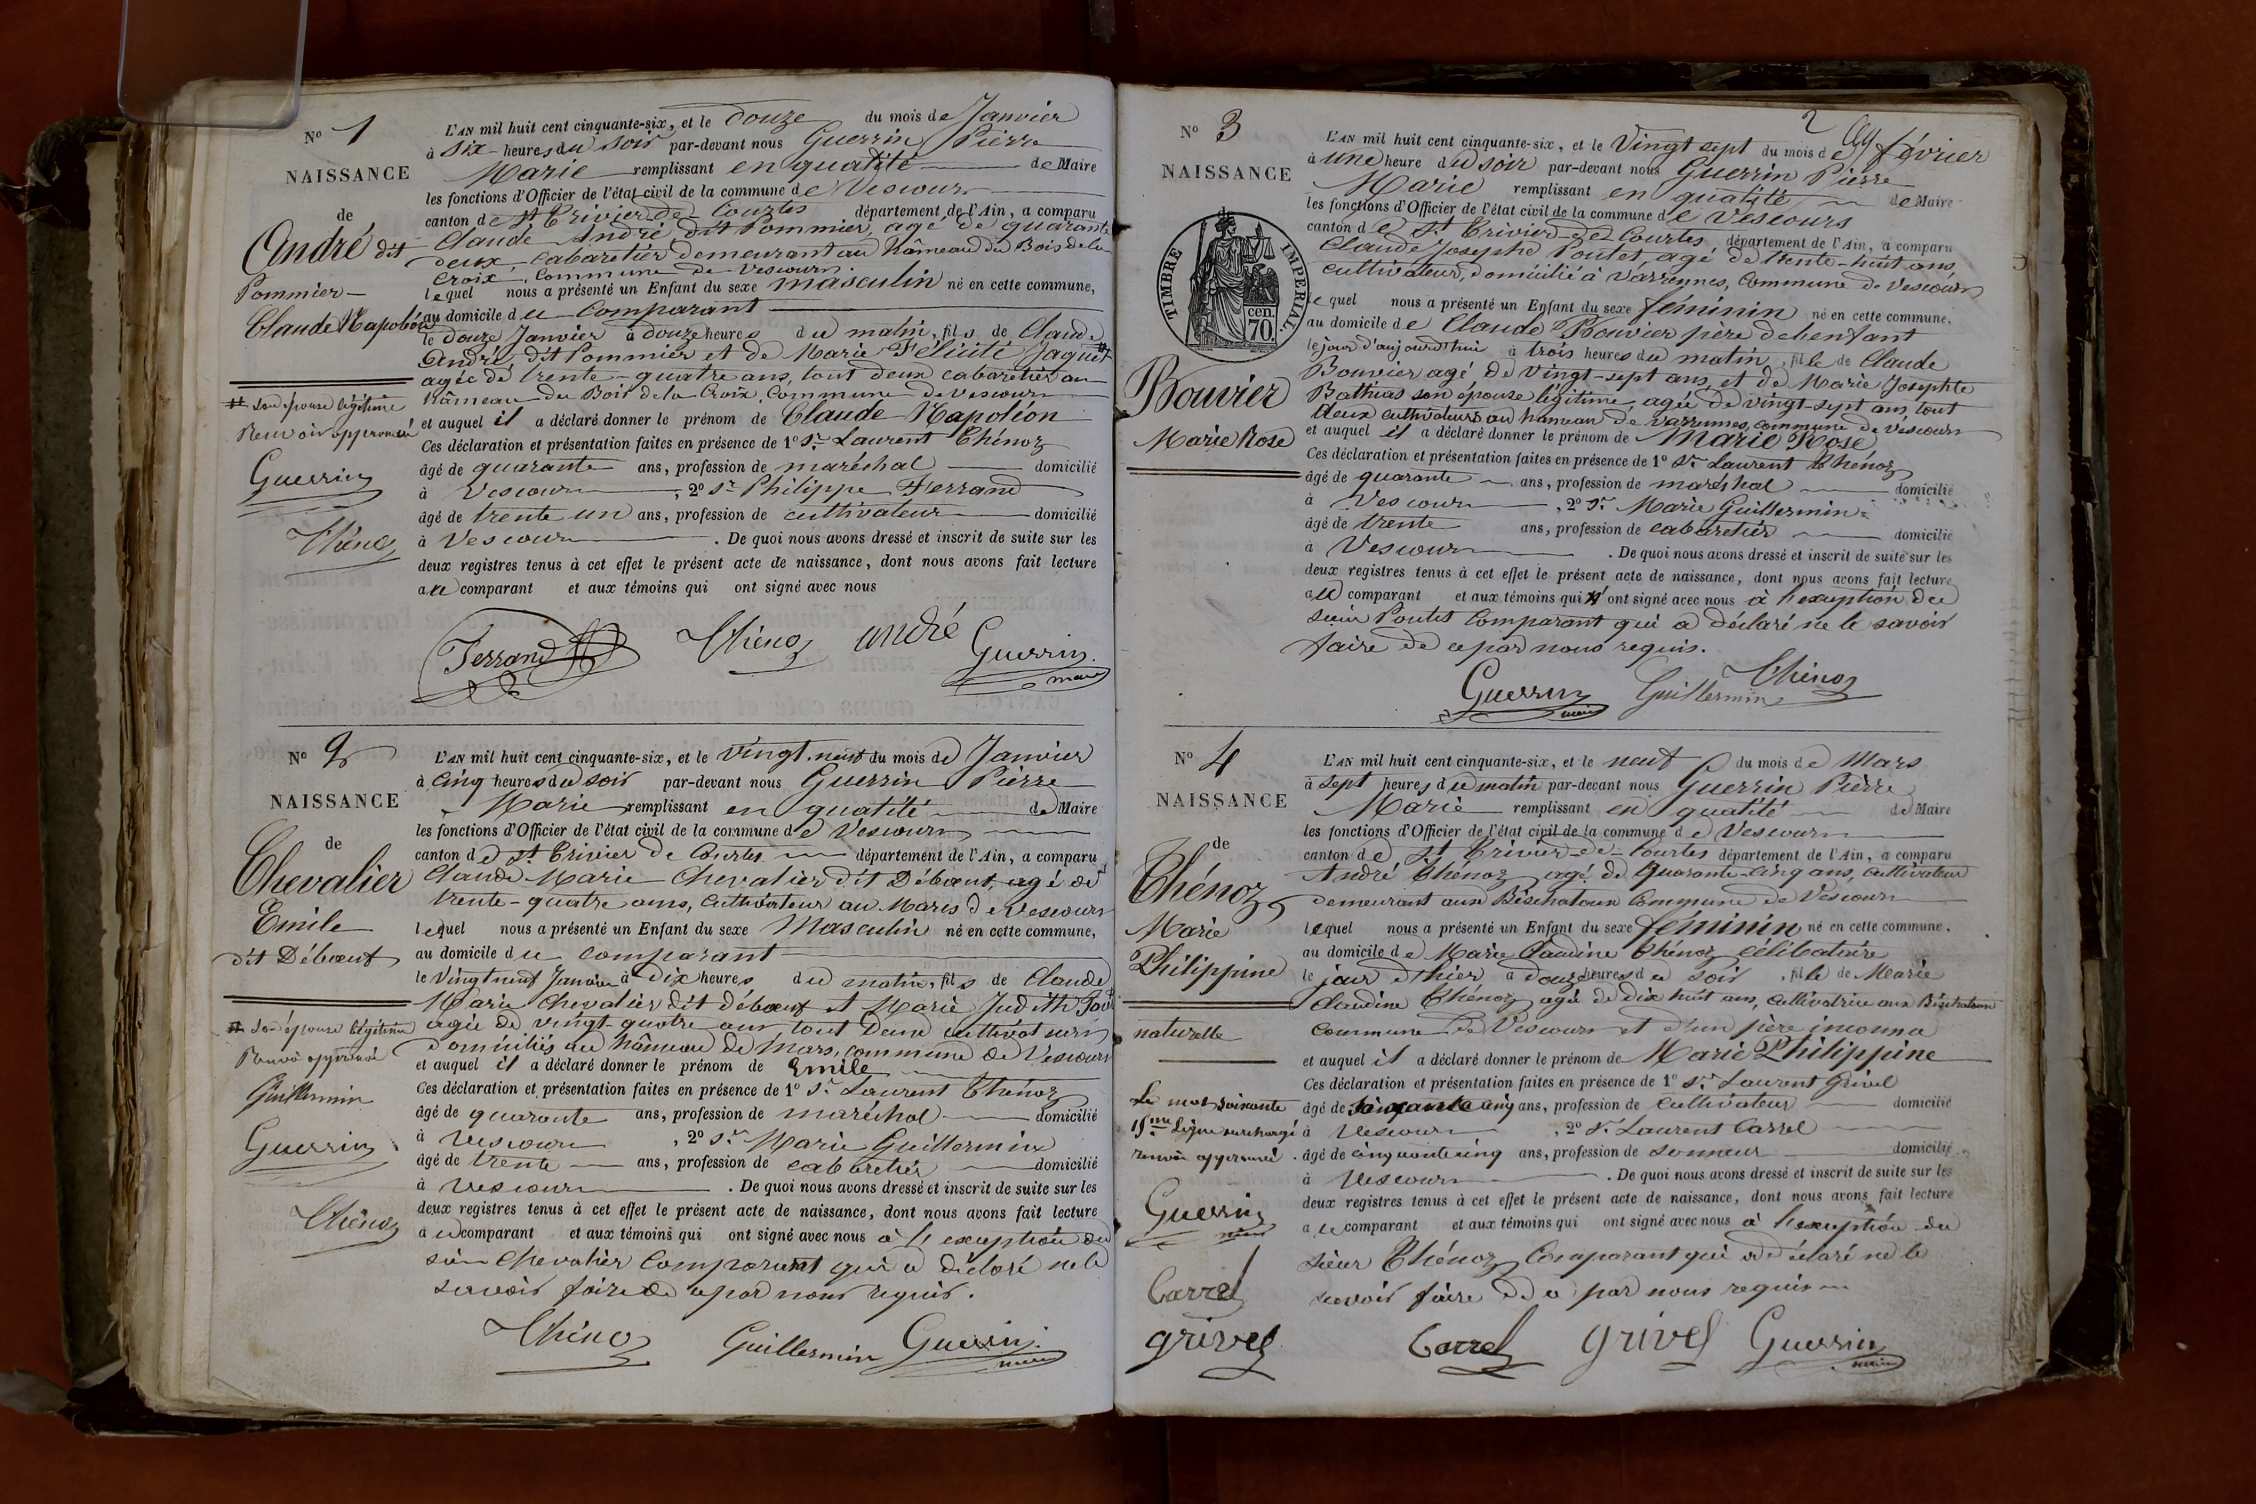 N° 1
NAISSANCE
de
André dit
Pommier
Claude Napoléon
# Son épouse légitime
Renvoi approuvé
Guerrin
Thénoz
L'AN mil huit cent cinquante-six, et le douze du mois de Janvier
à six heures du soir par-devant nous Guerrin Pierre
Marie remplissant en qualité de Maire
les fonctions d'Officier de l'état civil de la commune de Vescours
canton de St Trivier de Courtes département de l'Ain, a comparu
Claude André dit Pommier, agé de quarante
deux cabaretier demeurant au hâmeau du Bois de la
Croix, Commune de Vescours.
lequel nous a présenté un Enfant du sexe masculin né en cette commune,
au domicile du Comparant
le douze Janvier à douze heures du matin, fils de Claude
André dit Pommier et de Marie Félicité Jaquet #
agée de trente-quatre ans, tout deux cabaretier au
hâmeau du Bois de la Croix, Commune de Vescours
et auquel il a déclaré donner le prénom de Claude Napoléon
Ces déclaration et présentation faites en présence de 1° Sr Laurent Thénoz
âgé de quarante ans, profession de maréchal domicilié
à Vescours, 2° Sr Philippe Ferrand
âgé de trente un ans, profession de cultivateur domicilié
à Vescours. De quoi nous avons dressé et inscrit de suite sur les
deux registres tenus à cet effet le présent acte de naissance, dont nous avons fait lecture
au comparant et aux témoins qui ont signé avec nous
Ferrand Thénoz andré Guerrin
maire
N° 2
NAISSANCE
de
Chevalier
Emile
dit Débœuf
# Son épouse légitime
Renvoi approuvé
Guillermin
Guerrin
Thénoz
L'AN mil huit cent cinquante-six, et le vingt-neuf du mois de Janvier
à Cinq heures du soir par-devant nous Guerrin Pierre
Marie remplissant en qualité de Maire
les fonctions d'Officier de l'état civil de la commune de Vescours
canton de St Trivier de Courtes département de l'Ain, a comparu
Claude Marie Chevalier dit Débœuf, agé de
trente-quatre ans, Cultivateur au Mars de Vescours
lequel nous a présenté un Enfant du sexe Masculin né en cette commune,
au domicile du comparant
le Vingt neuf Janvier à Dix heures du matin, fils de Claude
Marie Chevalier dit débœuf et Marie Judith
agée de vingt-quatre ans, tout deux cultivateurs
domiciliés au hâmeau de Mars, commune de Vescours
et auquel il a déclaré donner le prénom de Emile
Ces déclaration et présentation faites en présence de 1° Sr Laurent Thénoz
âgé de quarante ans, profession de maréchal domicilié
à Vescours, 2° Sr Marie Guillermin
âgé de trente ans, profession de cabaretier domicilié
à Vescours. De quoi nous avons dressé et inscrit de suite sur les
deux registres tenus à cet effet le présent acte de naissance, dont nous avons fait lecture
au comparant et aux témoins qui ont signé avec nous à l'exception du
sieur Chevalier Comparant qui a déclaré ne le
savoir faire de ce par nous requis.
Thénoz Guillermin Guerrin
maire
2
N° 3
NAISSANCE
de
TIMBRE IMPERIAL.
cen. 70.
Bouvier
Marie Rose
L'AN mil huit cent cinquante-six, et le Vingt sept du mois de février
à une heure du soir par-devant nous Guerrin Pierre
Marie remplissant en qualité de Maire
les fonctions d'Officier de l'état civil de la commune de Vescours
canton de St Trivier de Courtes, département de l'Ain, a comparu
Claude Josephe Poulet agé de trente-huit ans,
cultivateur, domicilié à Varennes, Commune de Vescours
lequel nous a présenté un Enfant du sexe féminin né en cette commune,
au domicile de Claude Bouvier père de l'enfant
le jour d'aujourd'hui à trois heures du matin, fille de Claude
Bouvier agé de Vingt-sept ans, et de Marie Josephte
Bathias son épouse légitime, agée de vingt-sept ans, tout
deux cultivateurs au hameau de Varennes, commune de Vescours
et auquel il a déclaré donner le prénom de Marie Rose
Ces déclaration et présentation faites en présence de 1° Sr Laurent Thénoz
âgé de quarante ans, profession de maréchal domicilié
à Vescours, 2° Sr Marie Guillermin
âgé de trente ans, profession de cabaretier domicilié
à Vescours. De quoi nous avons dressé et inscrit de suite sur les
deux registres tenus à cet effet le présent acte de naissance, dont nous avons fait lecture
au comparant et aux témoins qui ont signé avec nous à l'exception du
sieur Poulet Comparant qui a déclaré ne le savoir
faire de ce par nous requis.
Guerrin Guillermin Thénoz
maire
N° 4
NAISSANCE
de
Thénoz
Marie
Philippine
naturelle
Le mot soixante
15me Ligne surchargé
renvoi approuvé.
Guerrin
maire
Carrel
grivel
L'AN mil huit cent cinquante-six, et le neuf du mois de Mars
à sept heures du matin par-devant nous Guerrin Pierre
Marie remplissant en qualité de Maire
les fonctions d'Officier de l'état civil de la commune de Vescours
canton de St Trivier-de-Courtes département de l'Ain, a comparu
André Thénoz agé de Quarante-cinq ans, cultivateur
demeurant aux Béchatoux Commune de Vescours
lequel nous a présenté un Enfant du sexe féminin né en cette commune,
au domicile de Marie Claudine Thénoz célibataire
le jour d'hier à douze heures du soir, fille de Marie
Claudine Thénoz, agée de dix huit ans, cultivatrice aux Béchatoux
Commune de Vescours et d'un père inconnu
et auquel il a déclaré donner le prénom de Marie Philippine
Ces déclaration et présentation faites en présence de 1° Sr Laurent grivel
âgé de soixante cinq ans, profession de cultivateur domicilié
à Vescours, 2° Sr Laurent Carrel
âgé de cinquante cinq ans, profession de sonneur domicilié
à Vescours. De quoi nous avons dressé et inscrit de suite sur les
deux registres tenus à cet effet le présent acte de naissance, dont nous avons fait lecture
au comparant et aux témoins qui ont signé avec nous à l'exception du
sieur Thénoz Comparant qui a déclaré ne le
savoir faire de ce par nous requis
Carrel grivel Guerrin
maire